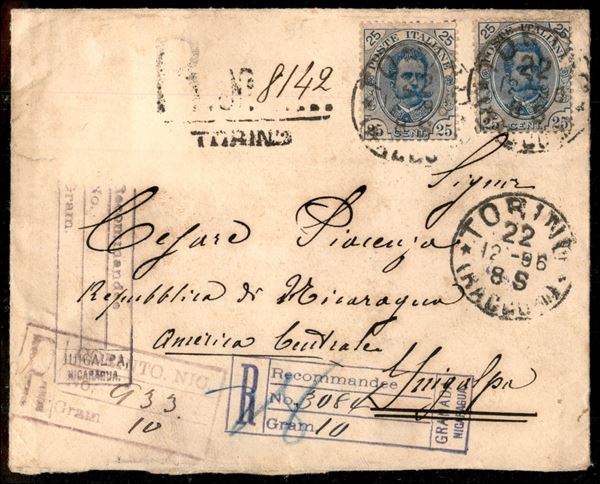 25 POSTE ITALIANE 25
25 CENT. 25
25 POSTE ITALIANE 25
CENT. 25
R. No. 8142
TORINO
Signr
Cesare Piacenza
Repubblica di Nicaragua
America Centrale
Juigalpa
TORINO
22
12-96
8-S
(RACCOM
Recommandée
No.
Gram.
JUIGALPA,
NICARAGUA.
NTO. NIC.
No. 933
Gram 10
R
Recommandée
No. 3084
Gram 10
GRANADA
NICARAGUA.